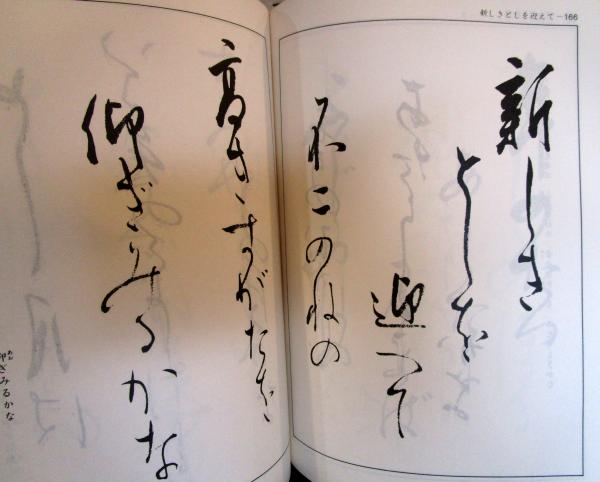 新しきとしを迎えて—166
新しき
としを
迎へて
不二のねの
高きすがたを
仰ぎみるかな
仰ぎみるかな